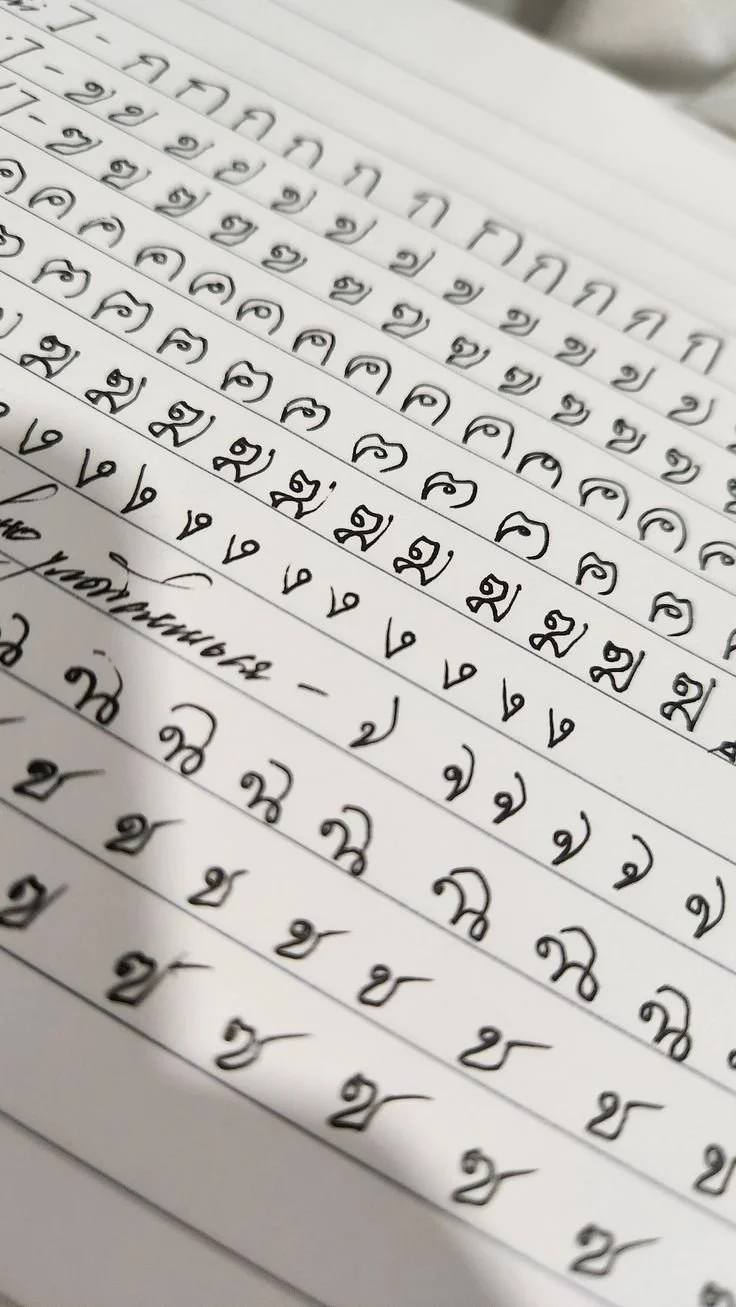 - ก ก ก ก ก ก ก ก ก ก ก
- ข ข ข ข ข ข ข ข ข ข ข ข
- ฃ ฃ ฃ ฃ ฃ ฃ ฃ ฃ ฃ ฃ ฃ ฃ
ค ค ค ค ค ค ค ค ค ค ค ค ค ค
ฅ ฅ ฅ ฅ ฅ ฅ ฅ ฅ ฅ ฅ
ฆ ฆ ฆ ฆ ฆ ฆ ฆ ฆ ฆ ฆ ฆ
ง ง ง ง ง ง ง ง ง ง ง
- จ จ จ จ จ จ
ฉ ฉ ฉ ฉ ฉ ฉ ฉ ฉ
ช ช ช ช ช ช ช ช
ซ ซ ซ ซ ซ ซ